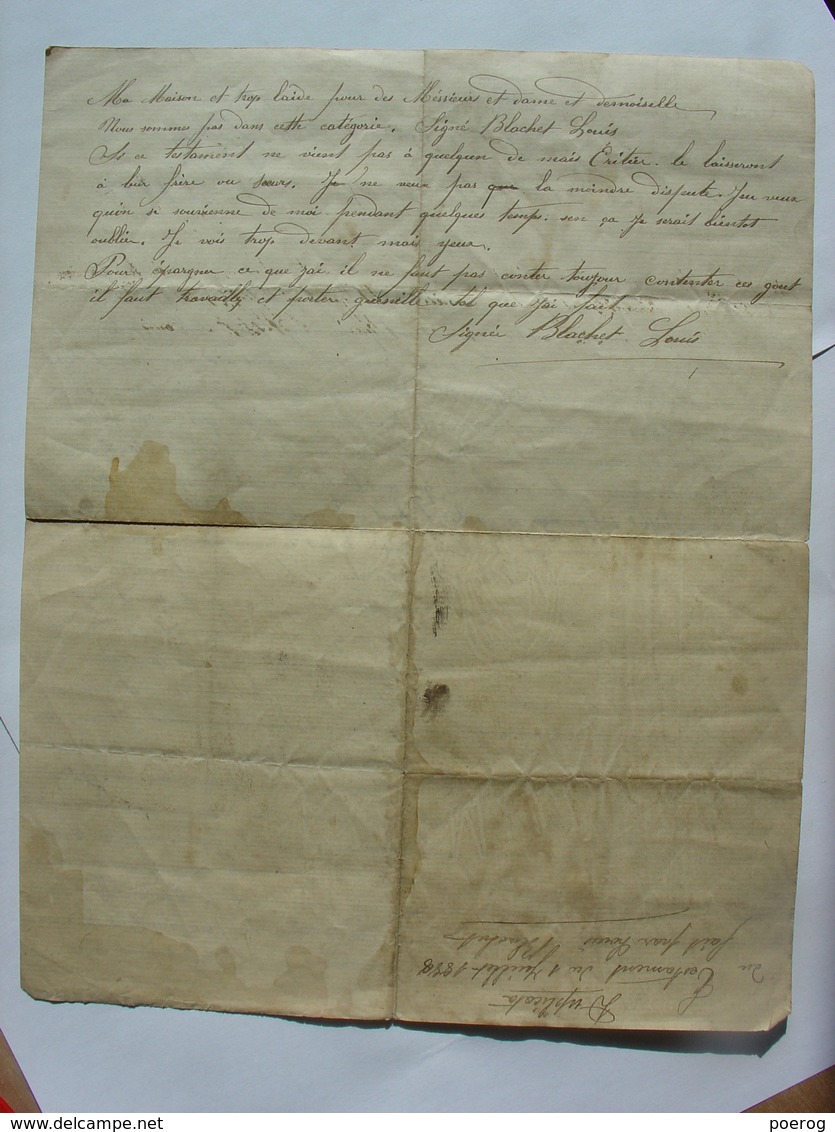 Ma Maison et trop laide pour des Méssieurs et dame et demoiselle
Nous sommes pas dans cette catégorie. Signé Blachet Louis
Si ce testament ne vient pas à quelqun de mais Eritier. le laisseront
à leur frère ou sœurs. Je ne veux pas que la moindre dispute. Jeu veux
qu'on se souvienne de moi pendant quelques temps. sen ça Je serait bientot
oublie. Je vois trop devant mais yeux.
Pour épargner ce que jai il ne faut pas conter toujour contenter ces gout
il faut travailly et porter guenille tel que j'ai fait
Signée Blachet Louis
Duplicata
du Testament du 1 Juillet 1888
fait par Louis Blachet
delcampe.net
poerog